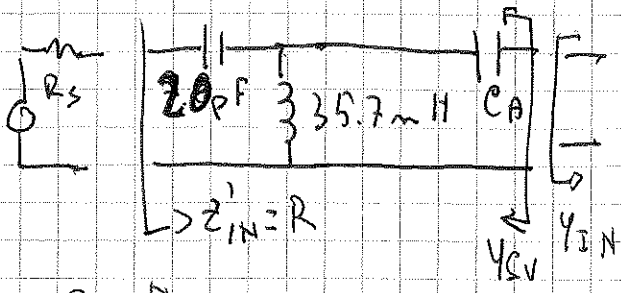 Rs
20pF
35.7nH
CA
Z'IN = R
YSV
YIN